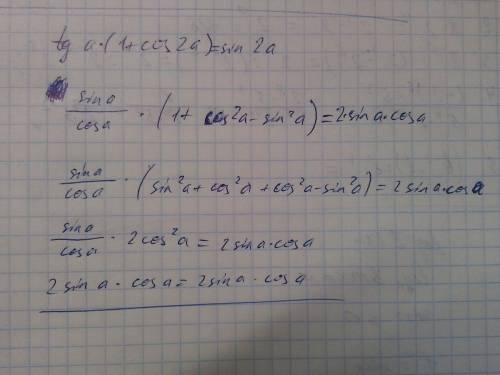 tg a·(1+cos2a)=sin 2a
sina/cosa · (1+ cos²a-sin²a)=2·sina·cosa
sina/cosa · (sin²a+cos²a+cos²a-sin²a)=2sina·cosa
sina/cosa · 2cos²a= 2sina·cosa
2sina·cosa=2sina·cosa